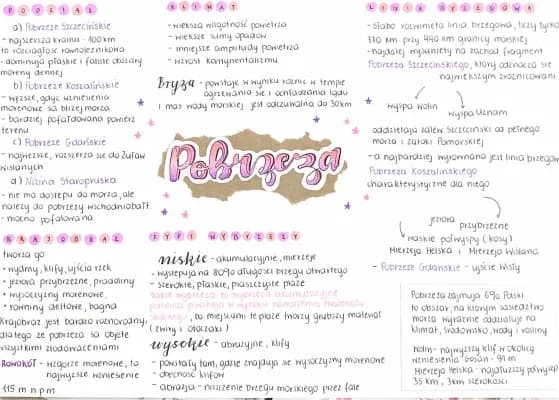 PODZIAŁ
a) Pobrzeże Szczecińskie
- najszersza kraina - 100km
to rozciągłość równoleżnikowa
- dominują płaskie i faliste obszary
moreny dennej
b) Pobrzeże Koszalińskie
- węższe, gdyż wzniesienia
morenowe są bliżej morza
- bardziej pofałdowano powierz
terenu
c) Pobrzeże Gdańskie
- najwęższe, rozszerza się do Żuław
Wiślanych
d) Nizina Staropruska
- nie ma dostępu do morza, ale
należy do pobrzeży wschodniobałt.
- mocno pofalowana
KRAJOBRAZ
tworzą go
• wydmy, klify, ujścia rzek
• jeziora przybrzeżne, pradoliny
• wysoczyzny morenowe,
• równiny deltowe, bagna
Krajobraz jest bardzo różnorodny,
dlatego że pobrzeża są objęte
wszystkimi zlodowaceniami
ROWOKÓŁ - wzgórze morenowe, to
najwyższe wzniesienie
115 m n.p.m
KLIMAT
- większa wilgotność powietrza
- większe sumy opadów
- mniejsze amplitudy powietrza
- wzrost kontynentalizmu
Bryza - powstaje w wyniku różnic w tempie
ogrzewania się i ochładzania lądu
i mas wody morskiej jest odczuwalna do 30km
Pobrzeża
TYPY WYBRZEŻY
niskie - akumulacyjne, mierzeje
- występują na 80% długości brzegu otwartego
- szerokie, płaskie, piaszczyste plaże
, to miejscami te plaże tworzy grubszy materiał
(żwiry i otoczaki)
wysokie - abrazyjne, klify
- powstały tam, gdzie znajduje się wysoczyzny morenowe
- obecność klifów
- abrazja - niszczenie brzegu morskiego przez fale
LINIA BRZEGOWA
- słabo rozwinięta linia brzegowa, liczy tylko
770 km przy 440km granicy morskiej
- najdalej wysunięty na zachód fragment
Pobrzeża Szczecińskiego, który odznacza się
największym zróżnicowaniem
wyspa Wolin
wyspa Uznam
oddzielają zalew Szczeciński od pełnego
morza i Zatoki Pomorskiej
- a najbardziej wyrównana jest linia brzegowa
Pobrzeża Koszalińskiego
charakterystyczne dla niego
jeziora przybrzeżne
wąskie półwyspy (kosy)
Mierzeja Helska i Mierzeja Wiślana
- Pobrzeże Gdańskie - ujście Wisły
Pobrzeża zajmują 6% Polski
to obszar, na którym sąsiedztwo
morza wyraźnie oddziałuje na
klimat, środowisko, wody i rośliny
Wolin - najwyższy klif w okolicy
wzniesienia Gosań - 91 m
Mierzeja Helska - najdłuższy półwysep
35 km, 3km szerokości